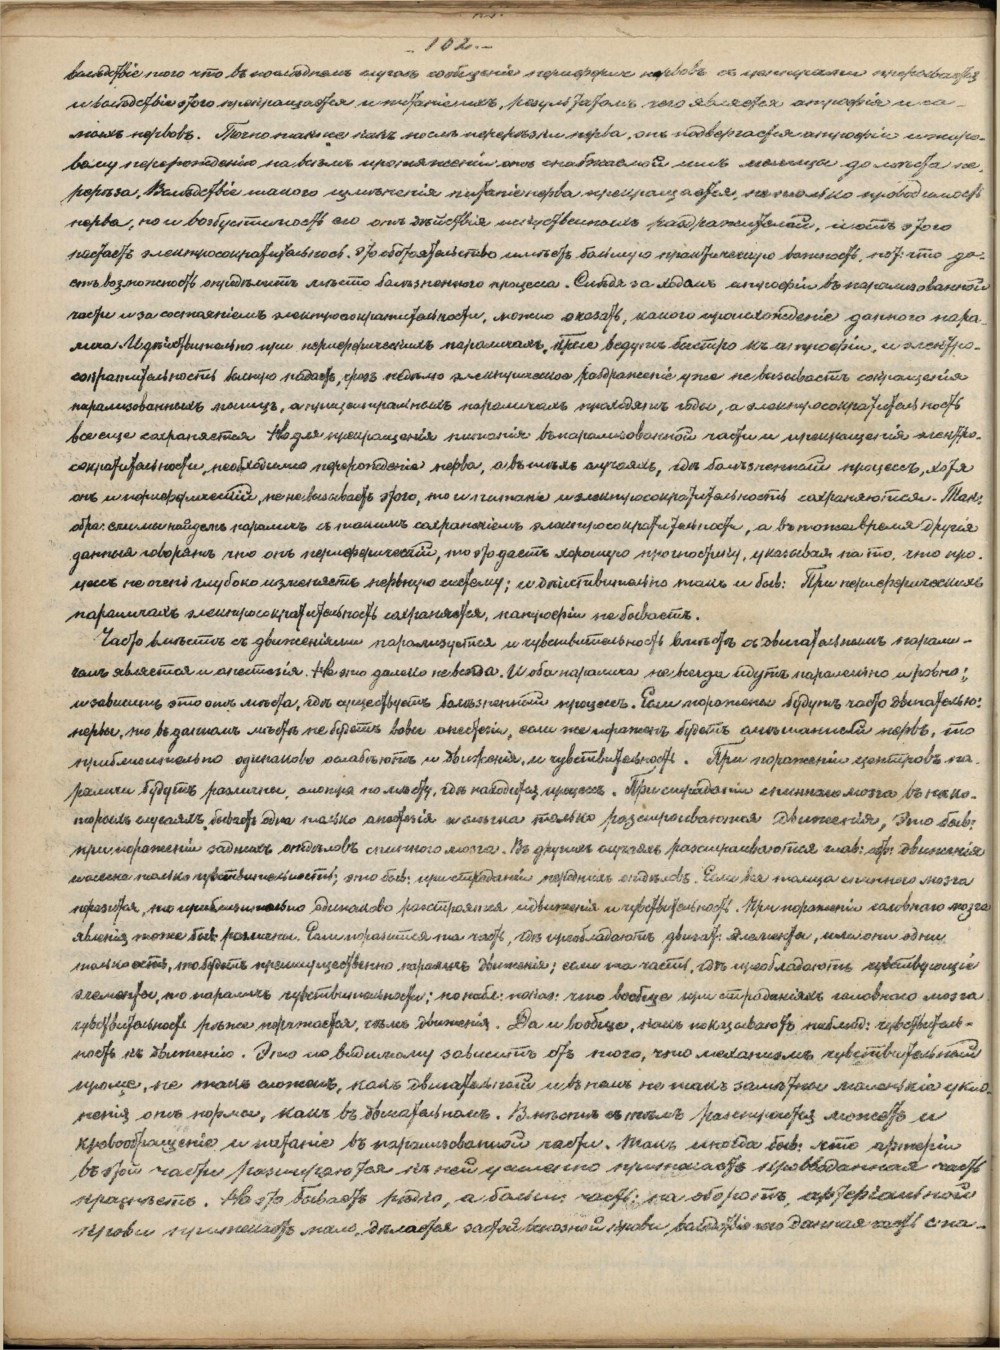 - 102. -
вслѣдствіе того что въ послѣднемъ случаѣ сообщеніе периферич нервовъ съ центрами прерывается
и вслѣдствіе этого прекращается и питаніе ихъ, результатомъ чего является атрофія и са-
михъ нервовъ. Точно также какъ послѣ перерѣзки нерва, онъ подвергается атрофіи и жиро-
вому перерожденію на всемъ протяженіи отъ снабжаемой имъ мышцы до мѣста пе-
рерѣза, Вслѣдствіе такого измѣненія питаніе нерва прекращается, не только проводимость
нерва, но и возбудимость его отъ дѣйствія искусственныхъ раздражителей, этого
падаетъ электросократительность. Это обстоятельство имѣетъ большую практическую важность, пот: что да-
етъ возможность опредѣлить мѣсто болѣзненного процесса. Слѣдя за ходомъ атрофіи въ парализованной
части и за состояніемъ электросократительности, можно сказать, какого происхожденіе данного пара-
лича. Дѣйствительно при периферическихъ параличахъ, ведутъ быстро къ атрофіи, и электро-
сократительность быстро падаетъ, чрезъ недѣлю электрическое раздраженіе уже не вызываетъ сокращенія
парализованныхъ мышцъ, а при центральныхъ параличахъ проходятъ годы, а электросократительность
все еще сохраняется. Но для прекращенія питанія въ парализованной части и прекращенія электро-
сократительности, необходимо перерожденіе нерва, а въ тѣхъ случаяхъ, гдѣ болѣзненный процессъ, хотя
онъ и периферическій, не вызываетъ этого, то и питаніе и электросократительность сохраняются. Так:
обра: если мы найдемъ параличъ съ такимъ сохраненіемъ электросократительности, а въ тоже время другія
данныя говорятъ что онъ периферическій, то это дастъ хорошую прогностику, указывая на то, что про-
цессъ не очень глубоко измѣняетъ нервную систему; и дѣйствительно такъ и быв: При периферическихъ
параличахъ электросократительность сохраняется, и атрофіи не бываетъ.
Часто вмѣстѣ съ движеніями парализуется и чувствительность вмѣстѣ съ двигательнымъ парали-
чомъ является и анестезія. Но это далеко не всегда. И оба паралича не всегда идутъ паралельно и ровно:,
и зависитъ это отъ мѣста, гдѣ существуетъ болѣзненный процессъ. Если поражены будутъ чисто двигательн:
нервы, то въ данномъ мѣстѣ не будетъ вовсе анестезіи, если же пораженъ будетъ смѣшанный нервъ, то
приблизительно одинаково ослабѣютъ и движенія, и чувствительность. При пораженіи центровъ па-
раличи будутъ различны, смотря по мѣсту, гдѣ находится процессъ. При страданіи спинного мозга въ нѣко-
торыхъ случаяхъ бываетъ одна только анестезія и только разстраиваются движенія, Это быв:
при пораженіи заднихъ отдѣловъ спинного мозга. Въ другихъ случаяхъ разстраиваются глав: обр: движенія
только чувствительность; это быв: при страданіи переднихъ отдѣловъ. Если вся толща спинного мозга
поразится, то приблизительно одинаково разстроятся и движенія и чувствительность. При пораженіи головного мозга
явленія тоже быв: различны. Если поразится та часть, гдѣ преобладаютъ двигат: элементы, или они одни
только есть, то будетъ преимущественно параличъ движенія; если та часть, гдѣ преобладаютъ чувствующіе
элементы, то параличъ чувствительности; но набл: показ: что вообще при страданіяхъ головного мозга
чувствительность рѣже поражается, чѣмъ движенія. Да и вообще, какъ показываютъ наблюд: чувствитель-
ность къ движенію. Это по видимому зависитъ отъ того, что механизмъ чувствительный
проще, не такъ сложенъ, какъ двигательный и въ немъ не такъ замѣтны маленькія укло-
ненія отъ нормы, какъ въ двигательномъ. Вмѣстѣ съ тѣмъ разстроится можетъ и
кровообращеніе и питаніе въ парализованной части. Такъ иногда быв: что артеріи
въ этой части расширяются къ ней усиленно притекаетъ кровь данная часть
краснѣетъ. Но это бываетъ рѣдко, а больш: часть: на оборотъ, артеріальной
крови притекаетъ мало, дѣлается застой венозной крови, вслѣдствіе чего данная часть спа-